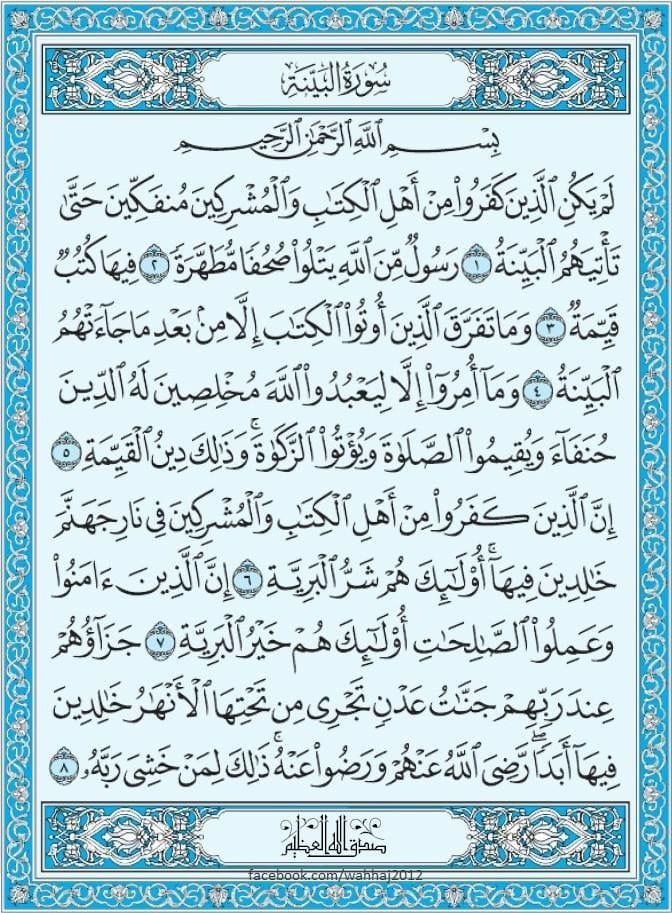 سُورَةُ البَيِّنَةِ
بِسْمِ ٱللَّهِ ٱلرَّحْمَٰنِ ٱلرَّحِيمِ
لَمْ يَكُنِ ٱلَّذِينَ كَفَرُوا۟ مِنْ أَهْلِ ٱلْكِتَٰبِ وَٱلْمُشْرِكِينَ مُنفَكِّينَ حَتَّىٰ
تَأْتِيَهُمُ ٱلْبَيِّنَةُ ١ رَسُولٌ مِّنَ ٱللَّهِ يَتْلُوا۟ صُحُفًا مُّطَهَّرَةً ٢ فِيهَا كُتُبٌ
قَيِّمَةٌ ٣ وَمَا تَفَرَّقَ ٱلَّذِينَ أُوتُوا۟ ٱلْكِتَٰبَ إِلَّا مِنۢ بَعْدِ مَا جَآءَتْهُمُ
ٱلْبَيِّنَةُ ٤ وَمَآ أُمِرُوٓا۟ إِلَّا لِيَعْبُدُوا۟ ٱللَّهَ مُخْلِصِينَ لَهُ ٱلدِّينَ
حُنَفَآءَ وَيُقِيمُوا۟ ٱلصَّلَوٰةَ وَيُؤْتُوا۟ ٱلزَّكَوٰةَ ۚ وَذَٰلِكَ دِينُ ٱلْقَيِّمَةِ ٥
إِنَّ ٱلَّذِينَ كَفَرُوا۟ مِنْ أَهْلِ ٱلْكِتَٰبِ وَٱلْمُشْرِكِينَ فِى نَارِ جَهَنَّمَ
خَٰلِدِينَ فِيهَآ ۚ أُو۟لَٰٓئِكَ هُمْ شَرُّ ٱلْبَرِيَّةِ ٦ إِنَّ ٱلَّذِينَ ءَامَنُوا۟
وَعَمِلُوا۟ ٱلصَّٰلِحَٰتِ أُو۟لَٰٓئِكَ هُمْ خَيْرُ ٱلْبَرِيَّةِ ٧ جَزَآؤُهُمْ
عِندَ رَبِّهِمْ جَنَّٰتُ عَدْنٍ تَجْرِى مِن تَحْتِهَا ٱلْأَنْهَٰرُ خَٰلِدِينَ
فِيهَآ أَبَدًا ۖ رَّضِىَ ٱللَّهُ عَنْهُمْ وَرَضُوا۟ عَنْهُ ۚ ذَٰلِكَ لِمَنْ خَشِىَ رَبَّهُۥ ٨
صدق الله العظيم
facebook.com/wahhaj2012